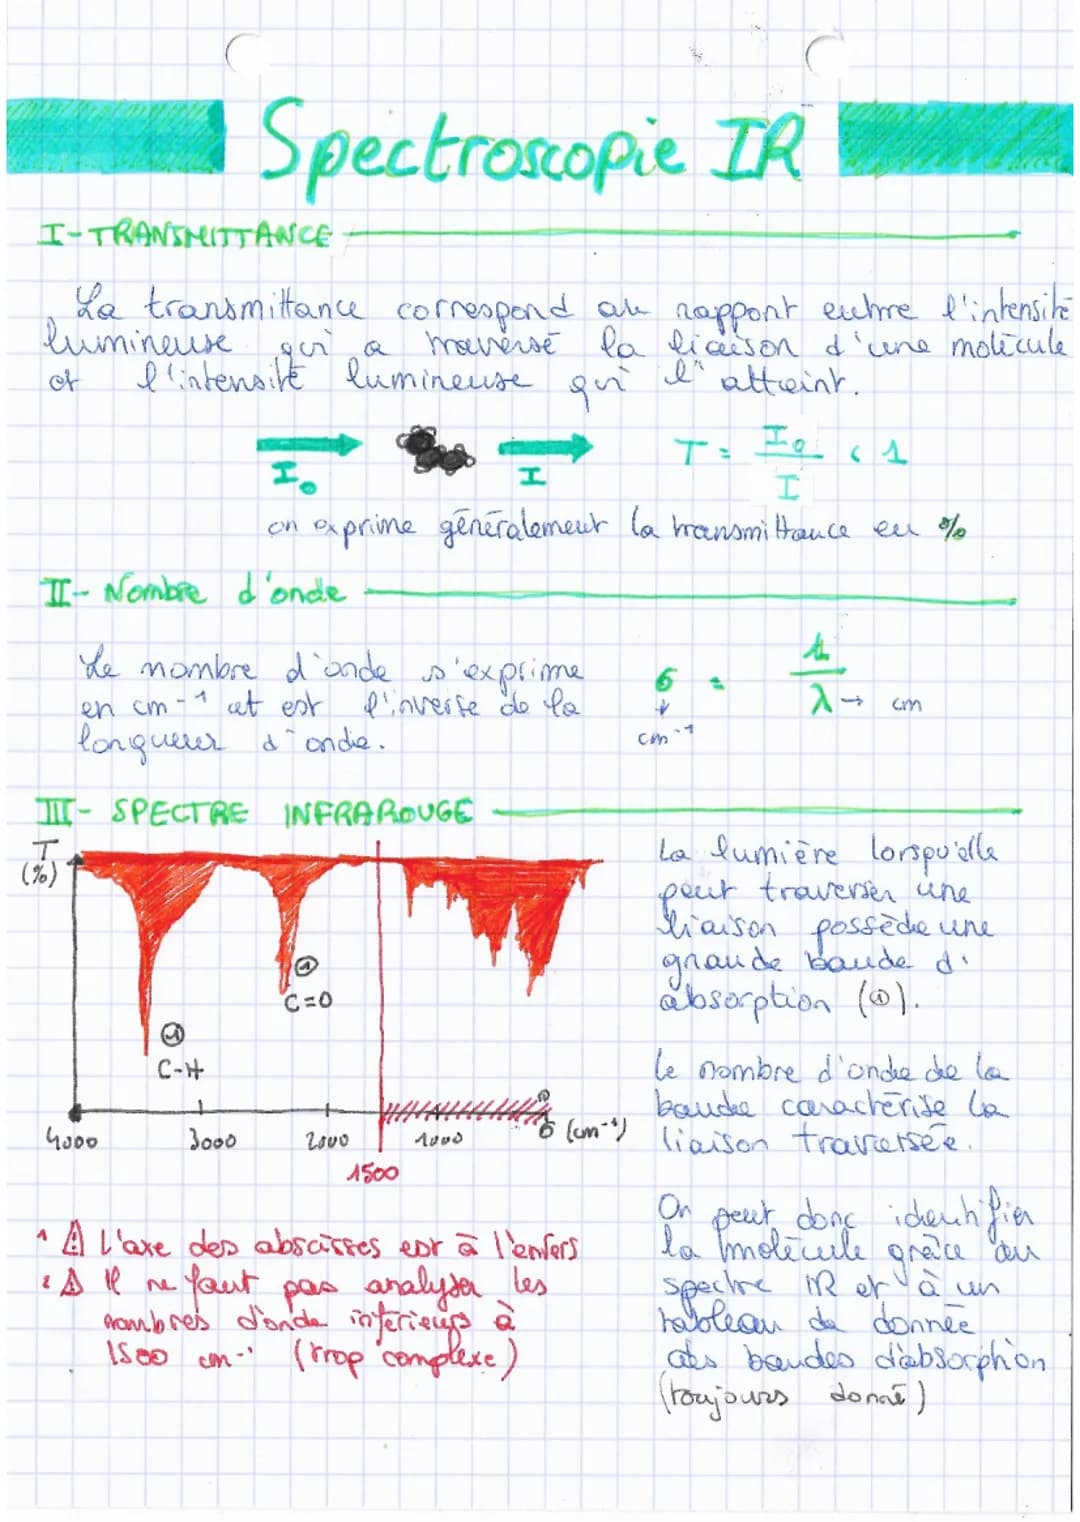 Spectroscopie IR
I-TRANSMITTANCE
La transmittance correspond au rapport entre l'intensité
lumineuse qui a traversé la liaison d'une molécule
et l'intensité lumineuse qui l'atteint.
I₀
I
T = I₀ / I < 1
on exprime généralement la transmittance en %
II- Nombre d'onde
Le nombre d'onde s'exprime
en cm-¹ et est l'inverse de la
longueur d'onde.
σ = 1 / λ → cm
↓
cm-¹
III- SPECTRE INFRAROUGE
T
(%)
① C=O
① C-H
4000 3000 2000 1000 σ (cm-¹)
1500
1 ⚠ L'axe des abscisses est à l'enfers
2 ⚠ Il ne faut pas analyser les
nombres d'onde inférieurs à
1500 cm-¹ (trop complexe)
La lumière lorspu'elle
peut traverser une
liaison possède une
grande bande d'
absorption (①).
Le nombre d'onde de la
bande caractérise la
liaison traversée.
On peut donc identifier
la molécule grâce au
spectre IR et à un
tableau de donnée
des bandes d'absorption
(toujours donné)